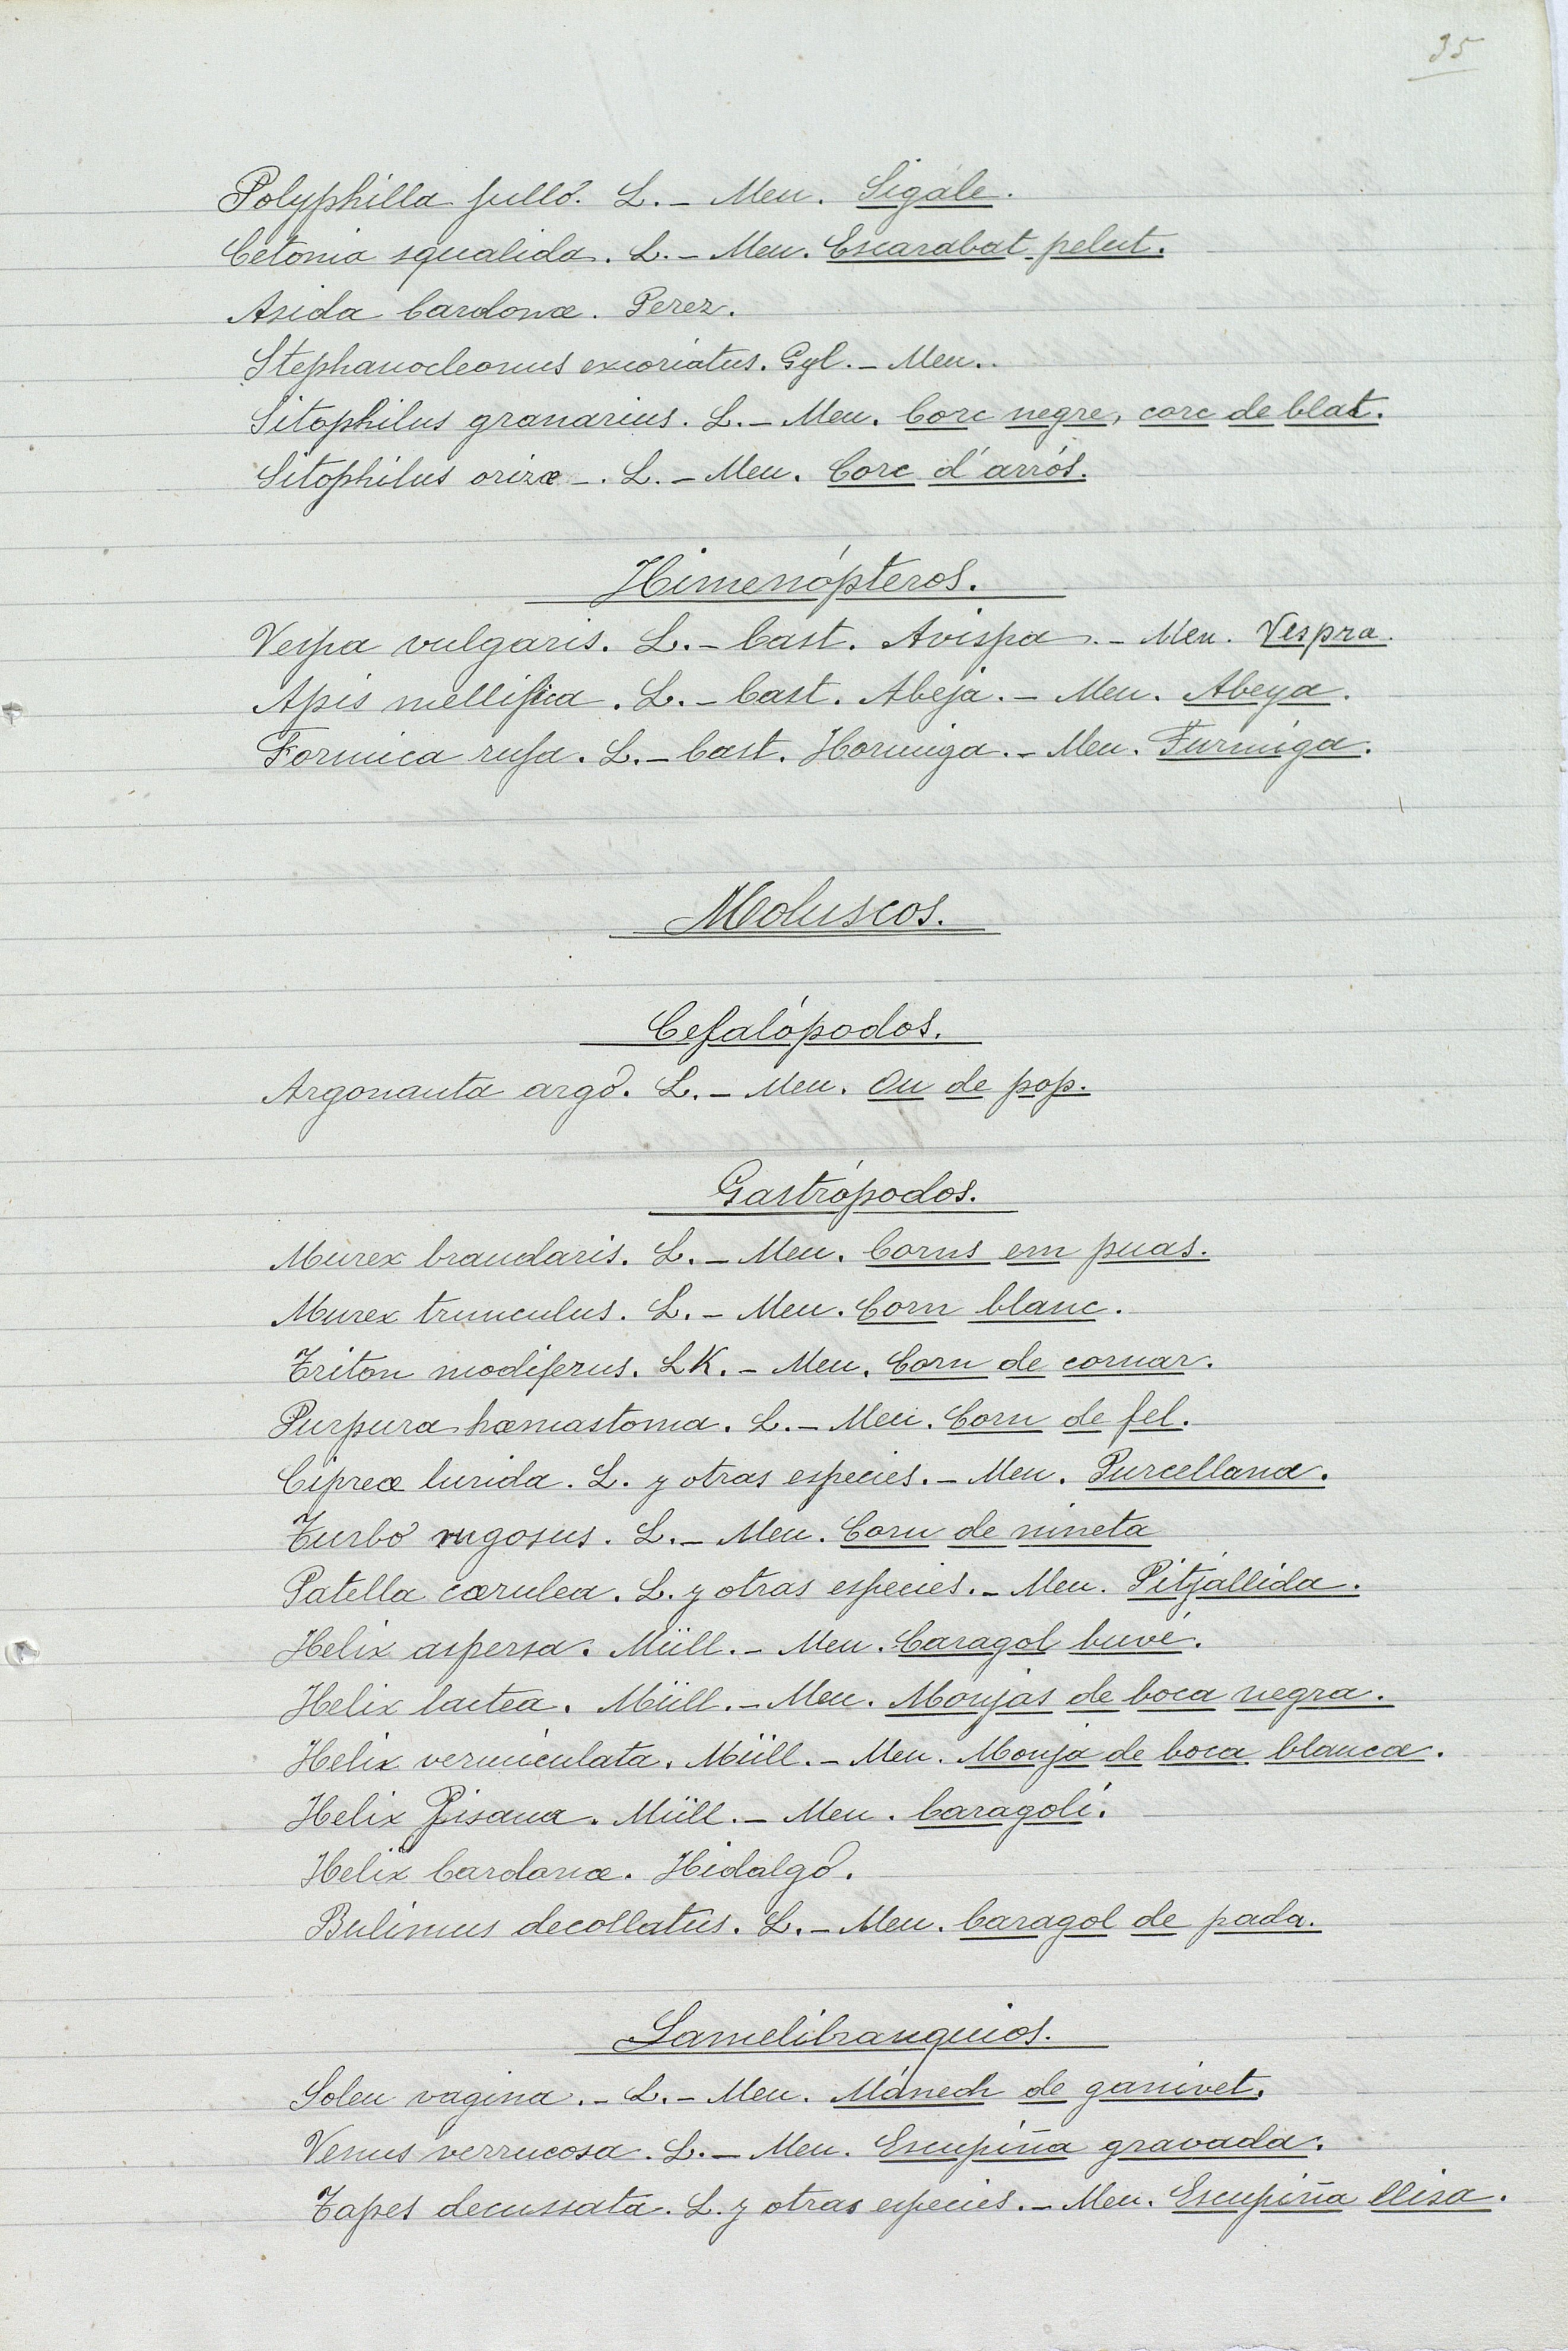 35
Polyphilla fulló. L. - Men. Sigále.
Cetonia squalida. L. - Men. Escarabat pelut.
Asida Cardonæ. Perez.
Stephanocleonus excoriatus. Gyl. - Men..
Sitophilus granarius. L. - Men. Corc negre, corc de blat.
Sitophilus orizæ -. L. - Men. Corc d'arrós.
Himenópteros.
Vespa vulgaris. L. - Cast. Avispa. - Men. Vespra.
Apis mellifica. L. - Cast. Abeja. - Men. Abeya.
Formica rufa. L. - Cast. Hormiga. - Men. Furmiga.
Moluscos.
Cefalópodos.
Argonauta argo. L. - Men. Ou de pop.
Gastrópodos.
Murex brandaris. L. - Men. Corns em puas.
Murex trunculus. L. - Men. Corn blanc.
Triton modiferus. LK. - Men. Corn de cornar.
Purpura hæmastoma. L. - Men. Corn de fel.
Cipreæ lurida. L. y otras especies. - Men. Purcellana.
Turbo rugosus. L. - Men. Corn de nineta
Patella cærulea. L. y otras especies. - Men. Pitjallida.
Helix aspersa. Müll. - Men. Caragol buvé.
Helix lactea. Müll. - Men. Monjas de boca negra.
Helix vermiculata. Müll. - Men. Monja de boca blanca.
Helix Pisana. Müll. - Men. Caragolí.
Helix Cardonæ. Hidalgo.
Bulimus decollatus. L. - Men. Caragol de pada.
Lamelibranquios.
Solen vagina. - L. - Men. Mánech de ganivet.
Venus verrucosa. L. - Men. Escupiña gravada.
Tapes decussata. L. y otras especies. - Men. Escupiña llisa.